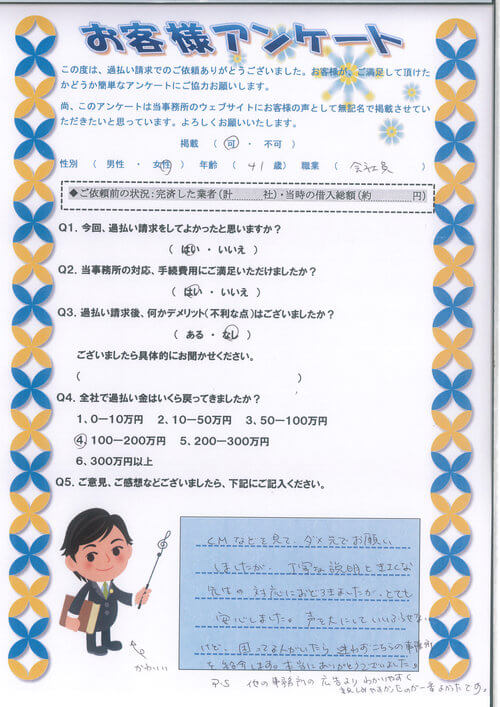 お客様アンケート
この度は、過払い請求でのご依頼ありがとうございました。お客様が、ご満足して頂けた
かどうか簡単なアンケートにご協力お願いします。
尚、このアンケートは当事務所のウェブサイトにお客様の声として無記名で掲載させてい
ただきたいと思っています。よろしくお願いいたします。
掲載 ( 可 ・ 不可 )
性別 ( 男性 ・ 女性 ) 年齢 ( 41 歳) 職業 ( 会社員 )
◆ご依頼前の状況：完済した業者(計 社)・当時の借入総額(約 円)
Q1. 今回、過払い請求をしてよかったと思いますか？
( はい ・ いいえ )
Q2. 当事務所の対応、手続費用にご満足いただけましたか？
( はい ・ いいえ )
Q3. 過払い請求後、何かデメリット(不利な点)はございましたか？
( ある ・ なし )
ございましたら具体的にお聞かせください。
( )
Q4. 全社で過払い金はいくら戻ってきましたか？
1、0－10万円 2、10－50万円 3、50－100万円
4、100－200万円 5、200－300万円
6、300万円以上
Q5. ご意見、ご感想などございましたら、下記にご記入ください。
CMなどを見て、ダメ元でお願い
しましたが、丁寧な説明と
先生の対応におどろきましたが、とても
安心しました。声を大にしていいふらせない
けど、困ってる人がいたら迷わずこちらの事務所
を紹介します。本当にありがとうございました。
P.S 他の事務所の広告よりわかりやすく
親しみやすかったのが一番よかったです。
かわいい